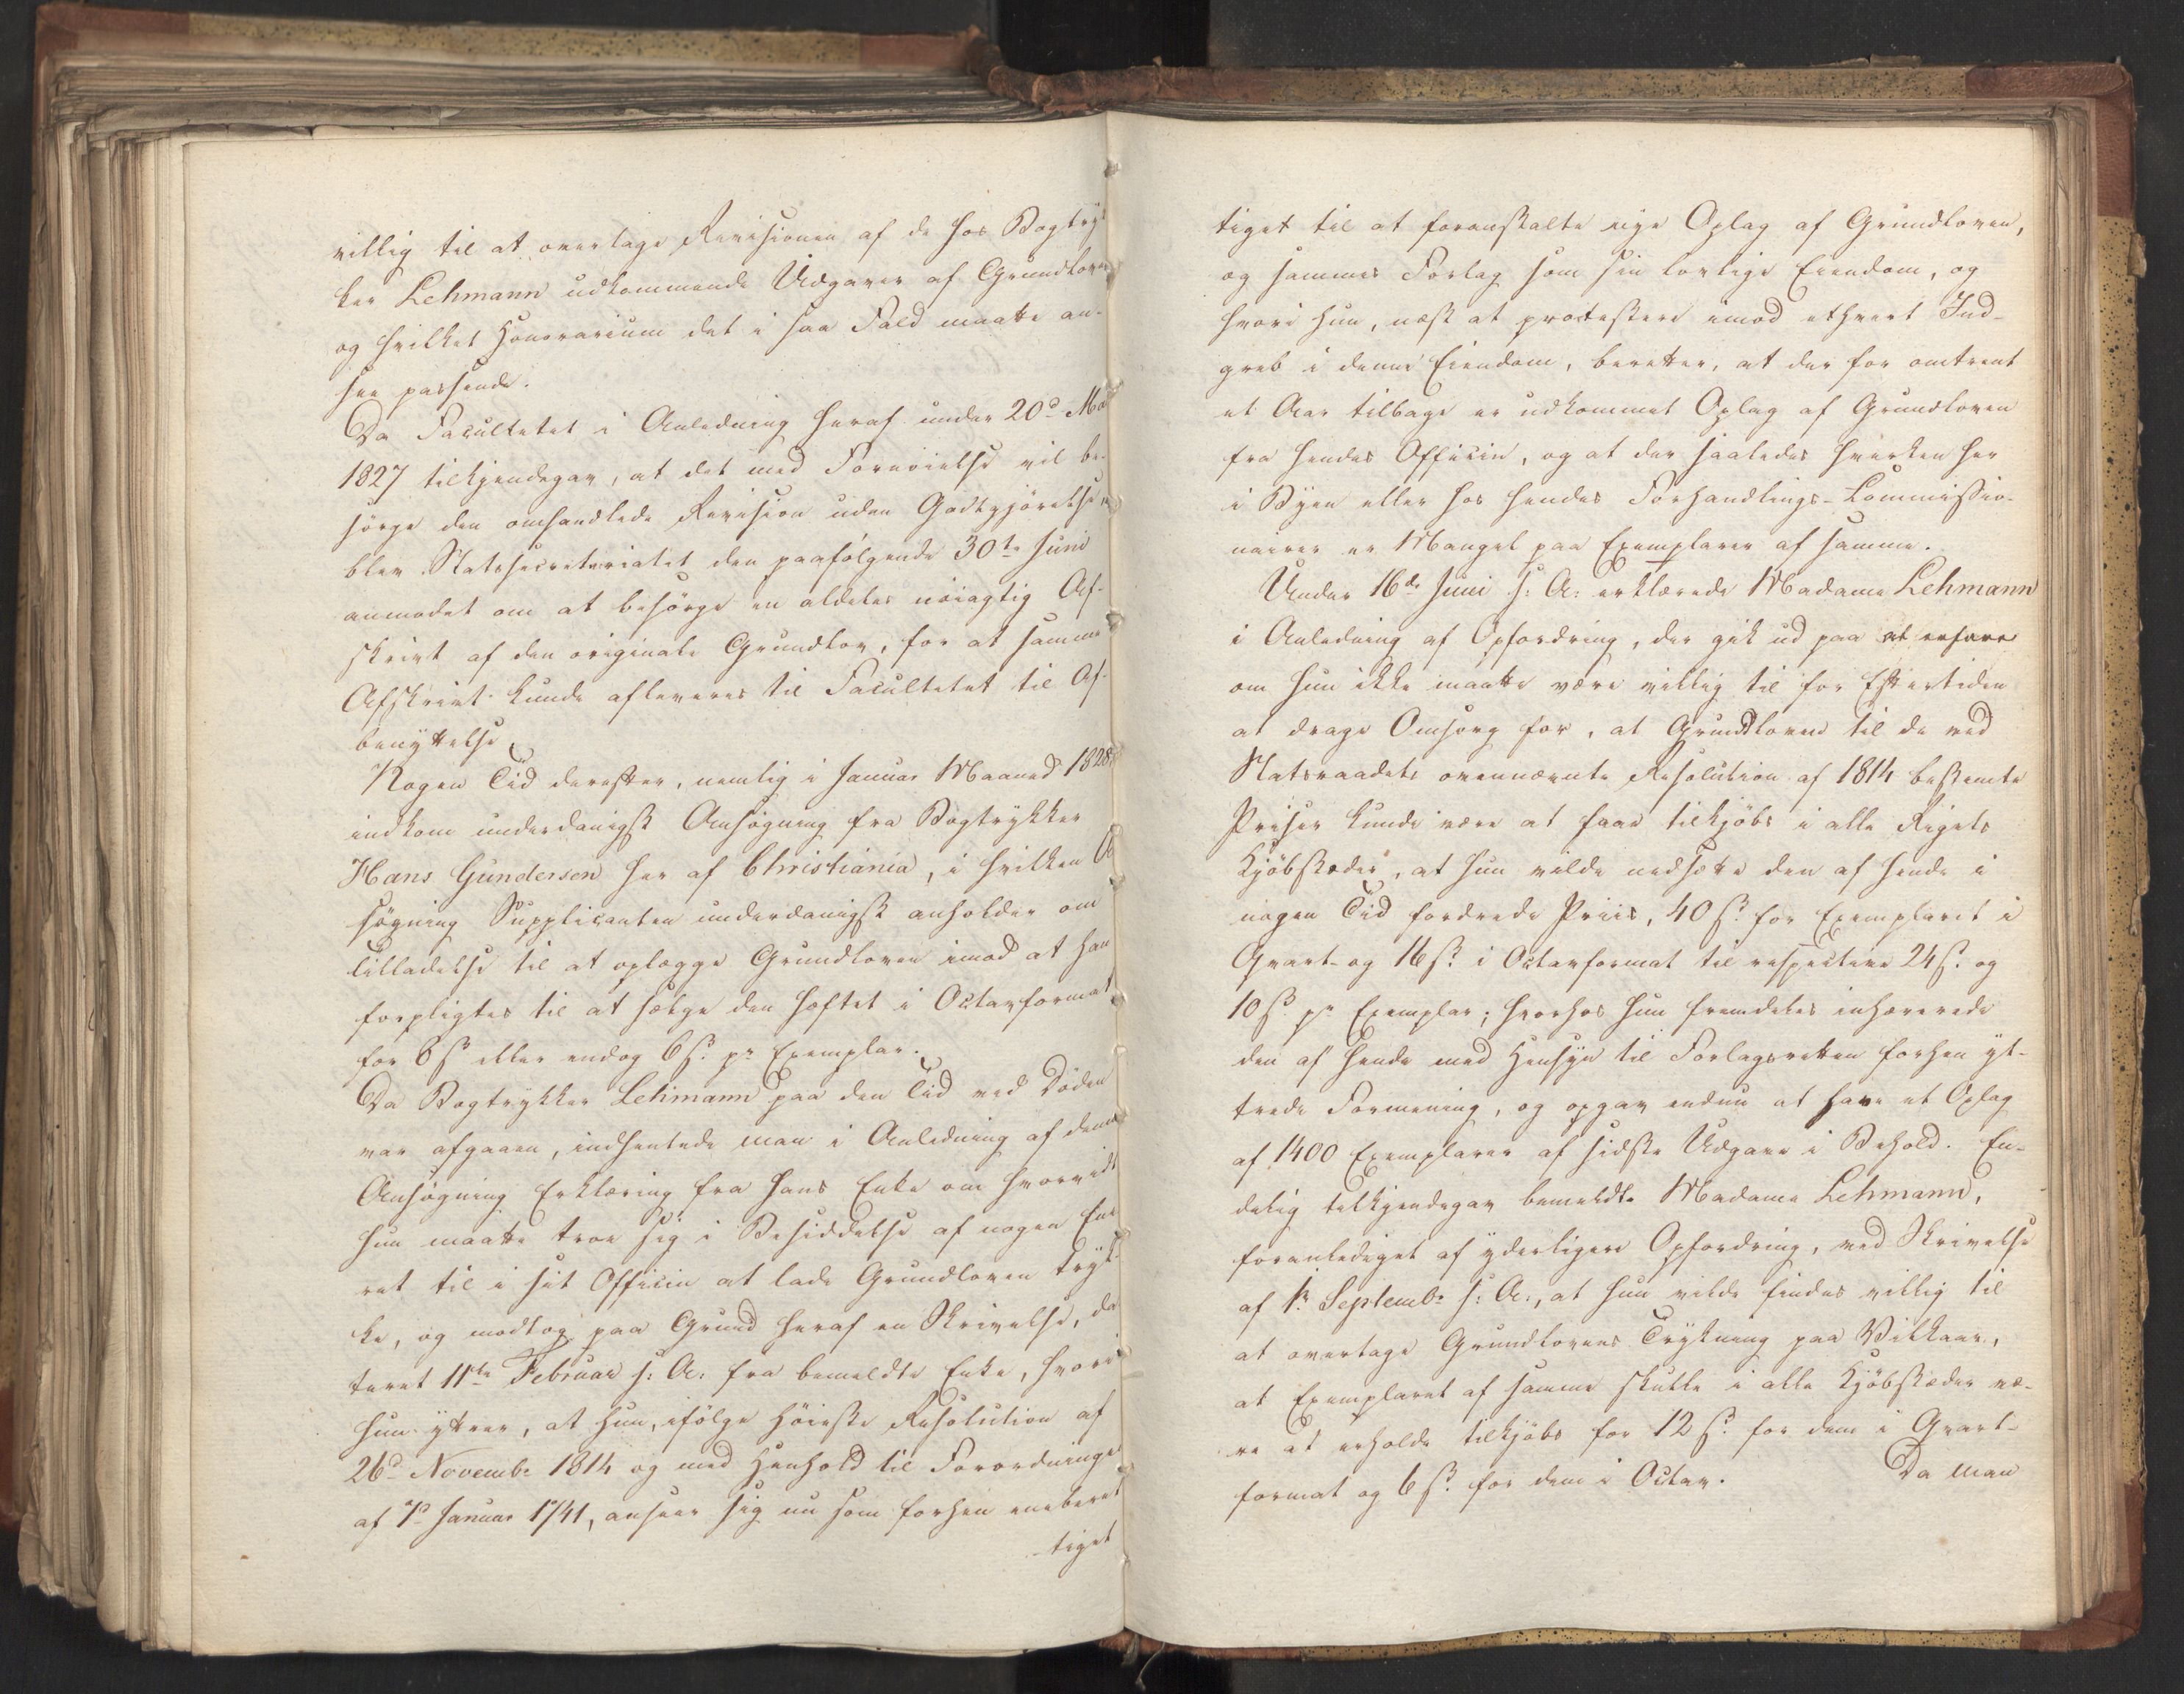 villig til at overtage Revisionen af de hos Bogtryk
ker Lehmann udkommende Udgaver af Grundloven
og hvilket Honorarium det i saa Fald maatte an-
see passende.
Da Facultetet i Anledning heraf under 20d Mai
1827 tilkjendegav, at det med Fornøielse vil be-
sørge den omhandlede Revision uden Godtgjørelse,
blev Statssecretariatet den paafølgende 30te Juni
anmodet om at besørge en aldeles nøiagtig Af-
skrivt af den originale Grundlov, for at samme
Afskrivt kunde afleveres til Facultetet til Af-
benyttelse.
Nogen Tid derefter, nemlig i Januar Maaned 1828
indkom underdanigst Ansøgning fra Bogtrykker
Hans Gundersen her af Christiania, i hvilken A
søgning Supplicanten underdanigst anholder om
Tilladelse til at oplægge Grundloven imod at han
forpligtes til at sælge den heftet i Octavformat
for 8 s. eller endog 6 s. pr Exemplar.
Da Bogtrykker Lehmann paa den Tid ved Døden
var afgaaen, indhentede man i Anledning af denne
Ansøgning Erklæring fra hans Enke om hvorvidt
hun maatte troe sig i Besiddelse af nogen Ene
ret til i sit Officin at lade Grundloven tryk
ke, og modtog paa Grund heraf en Skrivelse, da
teret 11te Februar s: A: fra bemeldte Enke, hvori
hun yttrer, at hun, ifølge høieste Resolution af
26d Novembr 1814 og med Henhold til Forordninge
af 7d Januar 1741, anseer sig nu som forhen eneberet
tiget
tiget til at foranstalte nye Oplag af Grundloven,
og sammes Forlag som sin lovlige Eiendom, og
hvori hun, næst at protestere imod ethvert Ind-
greb i denne Eiendom, beretter, at der for omtrent
et Aar tilbage er udkommet Oplag af Grundloven
fra hendes Officin, og at der saaledes hverken her
i Byen eller hos hendes Forhandlings-Commissio-
nairer er Mangel paa Exemplarer af samme.
Under 16de Juni s: A: erklærede Madame Lehmann
i Anledning af Opfordring, der gik ud paa at erfare
om hun ikke maatte være villig til for Eftertiden
at drage Omsorg for, at Grundloven til de ved
Statsraadets ovennævnte Resolution af 1814 bestemte
Priser kunde være at faae tilkjøbs i alle Rigets
Kjøbstæder, at hun vilde nedsætte den af hende i
nogen Tid fordrede Priis, 40 s. for Exemplaret i
Qvart- og 16 s. i Octavformat til respective 24 s. og
10 s. pr Exemplar; hvorhos hun fremdeles inhærerede
den af hende med Hensyn til Forlagsretten forhen yt-
trede Formening, og opgav endnu at have et Oplag
af 1400 Exemplarer af sidste Udgave i Behold. En-
delig tilkjendegav bemeldte Madame Lehmann,
foranlediget af yderligere Opfordring, ved Skrivelse
af 1. Septembr s: A:, at hun vilde findes villig til
at overtage Grundlovens Trykning paa Vilkaar,
at Exemplaret af samme skulle i alle Kjøbstæder væ-
re at erholde tilkjøbs for 12 s. for dem i Qvart-
format og 6 s. for dem i Octav.
Da man